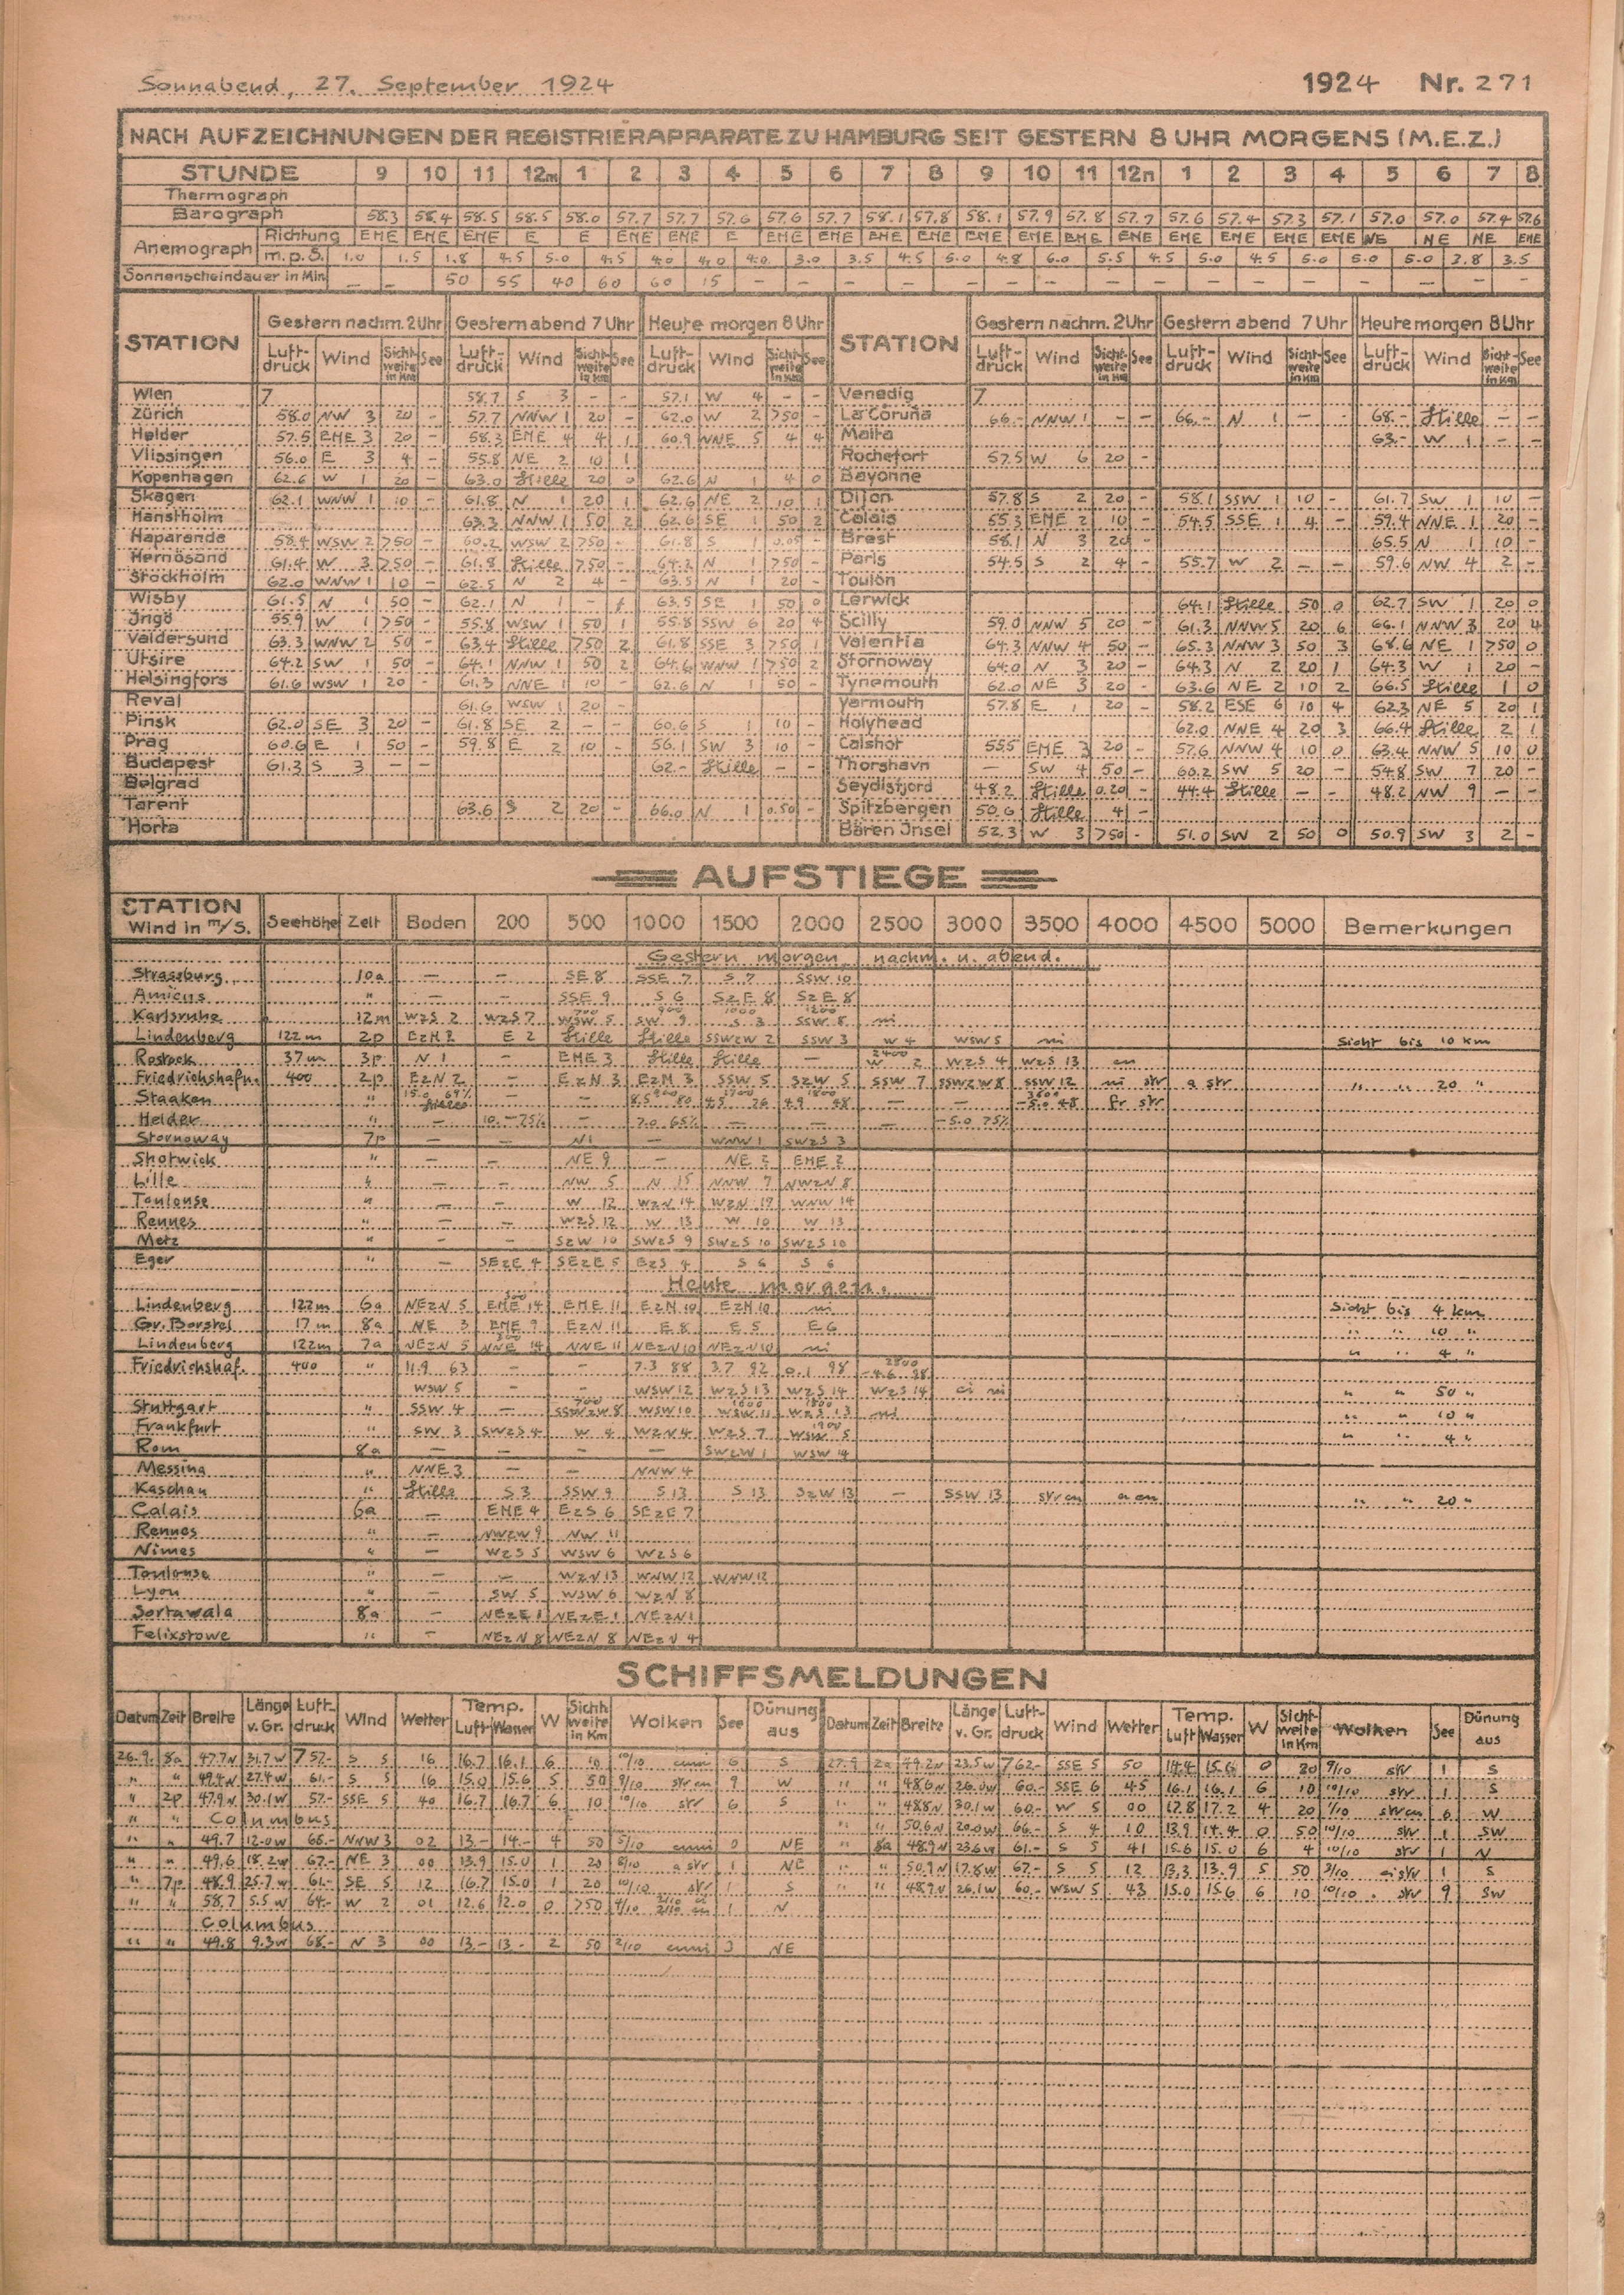 Sonnabend, 27. September 1924
1924 Nr. 271
NACH AUFZEICHNUNGEN DER REGISTRIERAPPARATE ZU HAMBURG SEIT GESTERN 8 UHR MORGENS (M.E.Z.)
STUNDE 9 10 11 12m 1 2 3 4 5 6 7 8 9 10 11 12n 1 2 3 4 5 6 7 8
Thermograph
Barograph 58.3 58.4 58.5 58.5 58.0 57.7 57.7 57.6 57.6 57.7 58.1 57.8 58.1 57.9 57.8 57.7 57.6 57.4 57.3 57.1 57.0 57.0 57.4 57.6
Anemograph Richtung ENE ENE ENE E E ENE ENE E ENE ENE ENE ENE ENE ENE ENE ENE ENE ENE ENE ENE NE NE NE ENE
m.p.S. 1.0 1.5 1.8 4.5 5.0 4.5 4.0 4.0 4.0 3.0 3.5 4.5 5.0 4.8 6.0 5.5 4.5 5.0 4.5 5.0 5.0 5.0 2.8 3.5
Sonnenscheindauer in Min. — — 50 55 40 60 60 15 — — — — — — — — — — — — — — — —
STATION Gestern nachm. 2 Uhr Gestern abend 7 Uhr Heute morgen 8 Uhr STATION Gestern nachm. 2 Uhr Gestern abend 7 Uhr Heute morgen 8 Uhr
Luftdruck Wind Sichtweite in Km See Luftdruck Wind Sichtweite in Km See Luftdruck Wind Sichtweite in Km See Luftdruck Wind Sichtweite in Km See Luftdruck Wind Sichtweite in Km See Luftdruck Wind Sichtweite in Km See
Wien 7 58.7 S 3 - - 57.1 W 4 - - Venedig 7
Zürich 58.0 NW 3 20 - 57.7 NNW 1 20 - 62.0 W 2 >50 - La Coruña 66.- NNW 1 - - 66.- N 1 - - 68.- Stille - -
Helder 57.5 ENE 3 20 - 58.3 ENE 4 4 1 60.9 NNE 5 4 4 Malta 63.- W 1 - -
Vlissingen 56.0 E 3 4 - 55.8 NE 2 10 1 Rochefort 57.5 W 6 20 -
Kopenhagen 62.6 W 1 20 - 63.0 Stille 20 0 62.6 N 1 4 0 Bayonne
Skagen 62.1 WNW 1 10 - 61.8 N 1 20 1 62.6 NE 2 10 1 Dijon 57.8 S 2 20 - 58.1 SSW 1 10 - 61.7 SW 1 10 -
Hanstholm 63.3 NNW 1 50 2 62.6 SE 1 50 2 Calais 55.3 ENE 2 10 - 54.5 SSE 1 4 - 59.4 NNE 1 20 -
Haparanda 58.4 WSW 2 >50 - 60.2 WSW 2 >50 - 61.8 S 1 0.05 - Brest 58.1 N 3 20 - 65.5 N 1 10 -
Hernösand 61.4 W 3 >50 - 61.8 Stille >50 - 64.2 N 1 >50 - Paris 54.5 S 2 4 - 55.7 W 2 - - 59.6 NW 4 2 -
Stockholm 62.0 WNW 1 10 - 62.5 N 2 4 - 63.5 N 1 20 - Toulon
Wisby 61.5 N 1 50 - 62.1 N 1 - 63.5 SE 1 50 0 Lerwick 64.1 Stille 50 0 62.7 SW 1 20 0
Ingö 55.9 W 1 >50 - 55.8 WSW 1 50 1 55.8 SSW 6 20 4 Scilly 59.0 NNW 5 20 - 61.3 NNW 5 20 6 66.1 NNW 3 20 4
Valdersund 63.3 WNW 2 50 - 63.4 Stille >50 2 61.8 SSE 3 >50 1 Valentia 64.3 NNW 4 50 - 65.3 NNW 3 50 3 68.6 NE 1 >50 0
Utsire 64.2 SW 1 50 - 64.1 NNW 1 50 2 64.6 WNW 1 >50 2 Stornoway 64.0 N 3 20 - 64.3 N 2 20 1 64.3 W 1 20 -
Helsingfors 61.6 WSW 1 20 - 61.3 NNE 1 10 - 62.6 N 1 50 - Tynemouth 62.0 NE 3 20 - 63.6 NE 2 10 2 66.5 Stille 1 0
Reval 61.6 WSW 1 20 - Yarmouth 57.8 E 1 20 - 58.2 ESE 6 10 4 62.3 NE 5 20 1
Pinsk 62.0 SE 3 20 - 61.8 SE 2 - - 60.6 S 1 10 - Holyhead 62.0 NNE 4 20 3 66.4 Stille 2 1
Prag 60.6 E 1 50 - 59.8 E 2 10 - 56.1 SW 3 10 - Calshot 55.5 ENE 3 20 - 57.6 NNW 4 10 0 63.4 NNW 5 10 0
Budapest 61.3 S 3 - - 62.- Stille - - Thorshavn — SW 4 50 - 60.2 SW 5 20 - 54.8 SW 7 20 -
Belgrad Seydisfjord 48.2 Stille 0.20 - 44.4 Stille - - 48.2 NW 9 - -
Tarent 63.6 S 2 20 - 66.0 N 1 0.50 - Spitzbergen 50.6 Stille 4 -
Horta Bären Insel 52.3 W 3 >50 - 51.0 SW 2 50 0 50.9 SW 3 2 -
AUFSTIEGE
STATION Wind in m/S. Seehöhe Zeit Boden 200 500 1000 1500 2000 2500 3000 3500 4000 4500 5000 Bemerkungen
Gestern morgen, nachm. u. abend.
Straszburg 10a — — SE 8 SSE 7 S 7 SSW 10
Amicus " — — SSE 9 S 6 SzE 8 SzE 8
Karlsruhe 12m WzS 2 WzS 7 700 WSW 5 900 SW 9 1000 S 3 1200 SSW 8 ni
Lindenberg 122m 2p EzN 2 E 2 Stille Stille SSWzW 2 SSW 3 W 4 WSW 5 ni Sicht bis 10 km
Rostock 37m 3p N 1 ENE 3 Stille Stille — 2400 W 2 WzS 4 WzS 13 cu
Friedrichshafn. 400 2p EzN 2 — EzN 3 EzN 3 SSW 5 SzW 5 SSW 7 SSWzW 8 SSW 12 ni str a str " " 20 "
Staaken " 15.0 69% Stille — — 900 8.5 80 1700 4.5 26 1800 4.9 48 — — 3600 -5.0 48 fr str
Helder " — 10.- 75% — 7.0 65% — — — -5.0 75%
Stornoway 7p — — N 1 — WNW 1 SWzS 3
Shotwick " — — NE 9 — NE 2 ENE 2
Lille " — — NW 5 N 15 NNW 7 NWzN 8
Toulouse " — — W 12 WzN 14 WzN 17 WNW 14
Rennes " — — WzS 12 W 13 W 10 W 13
Metz " — — SzW 10 SWzS 9 SWzS 10 SWzS 10
Eger " — SEzE 4 SEzE 5 EzS 4 S 6 S 6
Heute morgen.
Lindenberg 122m 6a NEzN 5 300 ENE 14 ENE 11 EzN 10 EzN 10 ni Sicht bis 4 km
Gr. Borstel 17m 8a NE 3 ENE 9 EzN 11 E 8 E 5 E 6 " " 10 "
Lindenberg 122m 7a NEzN 5 300 NNE 14 NNE 11 NEzN 10 NEzN 10 ni " " 4 "
Friedrichshaf. 400 " 11.9 63 — — 7.3 88 3.7 92 0.1 98 2800 -4.6 98
WSW 5 — — WSW 12 WzS 13 WzS 14 WzS 14 ci ni " " 50 "
Stuttgart " SSW 4 — 700 SSWzW 8 WSW 10 1600 WSW 11 1800 WzS 13 ni " " 10 "
Frankfurt " SW 3 SWzS 4 W 4 WzN 4 WzS 7 1900 WSW 5 " " 4 "
Rom 8a — — — — SWzW 1 WSW 14
Messina " NNE 3 — — NNW 4
Kaschau " Stille S 3 SSW 9 S 13 S 13 SzW 13 — SSW 13 str cu a cu " " 20 "
Calais 6a — ENE 4 EzS 6 SEzE 7
Rennes " — NWzW 9 NW 11
Nimes " — WzS 5 WSW 6 WzS 6
Toulouse " — — WzN 13 WNW 12 WNW 12
Lyon " — SW 5 WSW 6 WzN 8
Sortawala 8a — NEzE 1 NEzE 1 NEzN 1
Felixstowe " — NEzN 8 NEzN 8 NEzN 4
SCHIFFSMELDUNGEN
Datum Zeit Breite Länge v. Gr. Luftdruck Wind Wetter Temp. Luft Wasser W Sichtweite in Km Wolken See Dünung aus Datum Zeit Breite Länge v. Gr. Luftdruck Wind Wetter Temp. Luft Wasser W Sichtweite in Km Wolken See Dünung aus
26.9. 8a 47.7N 31.7W 757.- S 5 16 16.7 16.1 6 10 10/10 cuni 6 S 27.9 2a 49.2N 23.5W 762.- SSE 5 50 14.4 15.6 0 20 9/10 str 1 S
" " 49.4N 27.4W 61.- S 5 16 15.0 15.6 5 50 9/10 str cu 9 W " " 48.6N 26.0W 60.- SSE 6 45 16.1 16.1 6 10 10/10 str 1 S
" 2p 47.9N 30.1W 57.- SSE 5 40 16.7 16.7 6 10 10/10 str 6 S " " 48.8N 30.1W 60.- W 5 00 17.8 17.2 4 20 str cu 6 W
" " Columbus " " 50.6N 20.0W 66.- S 4 10 13.9 14.4 0 50 10/10 str 1 SW
" " 49.7 12.0W 66.- NNW 3 02 13.- 14.- 4 50 5/10 cuni 0 NE " 8a 48.9N 23.6W 61.- S 5 41 15.6 15.0 6 4 10/10 str 1 N
" " 49.6 18.2W 67.- NE 3 00 13.9 15.0 1 20 8/10 a str 1 NE " " 50.9N 17.8W 67.- S 5 12 13.3 13.9 5 50 3/10 ci str 1 S
" 7p 48.9 25.7W 61.- SE 5 12 16.7 15.0 1 20 10/10 str 1 S " " 48.9N 26.1W 60.- WSW 5 43 15.0 15.6 6 10 10/10 str 9 SW
" " 58.7 5.5W 64.- W 2 01 12.6 12.0 0 >50 4/10 2/10 cu 1 N
Columbus
" " 49.8 9.3W 68.- N 3 00 13.- 13.- 2 50 2/10 cuni 3 NE